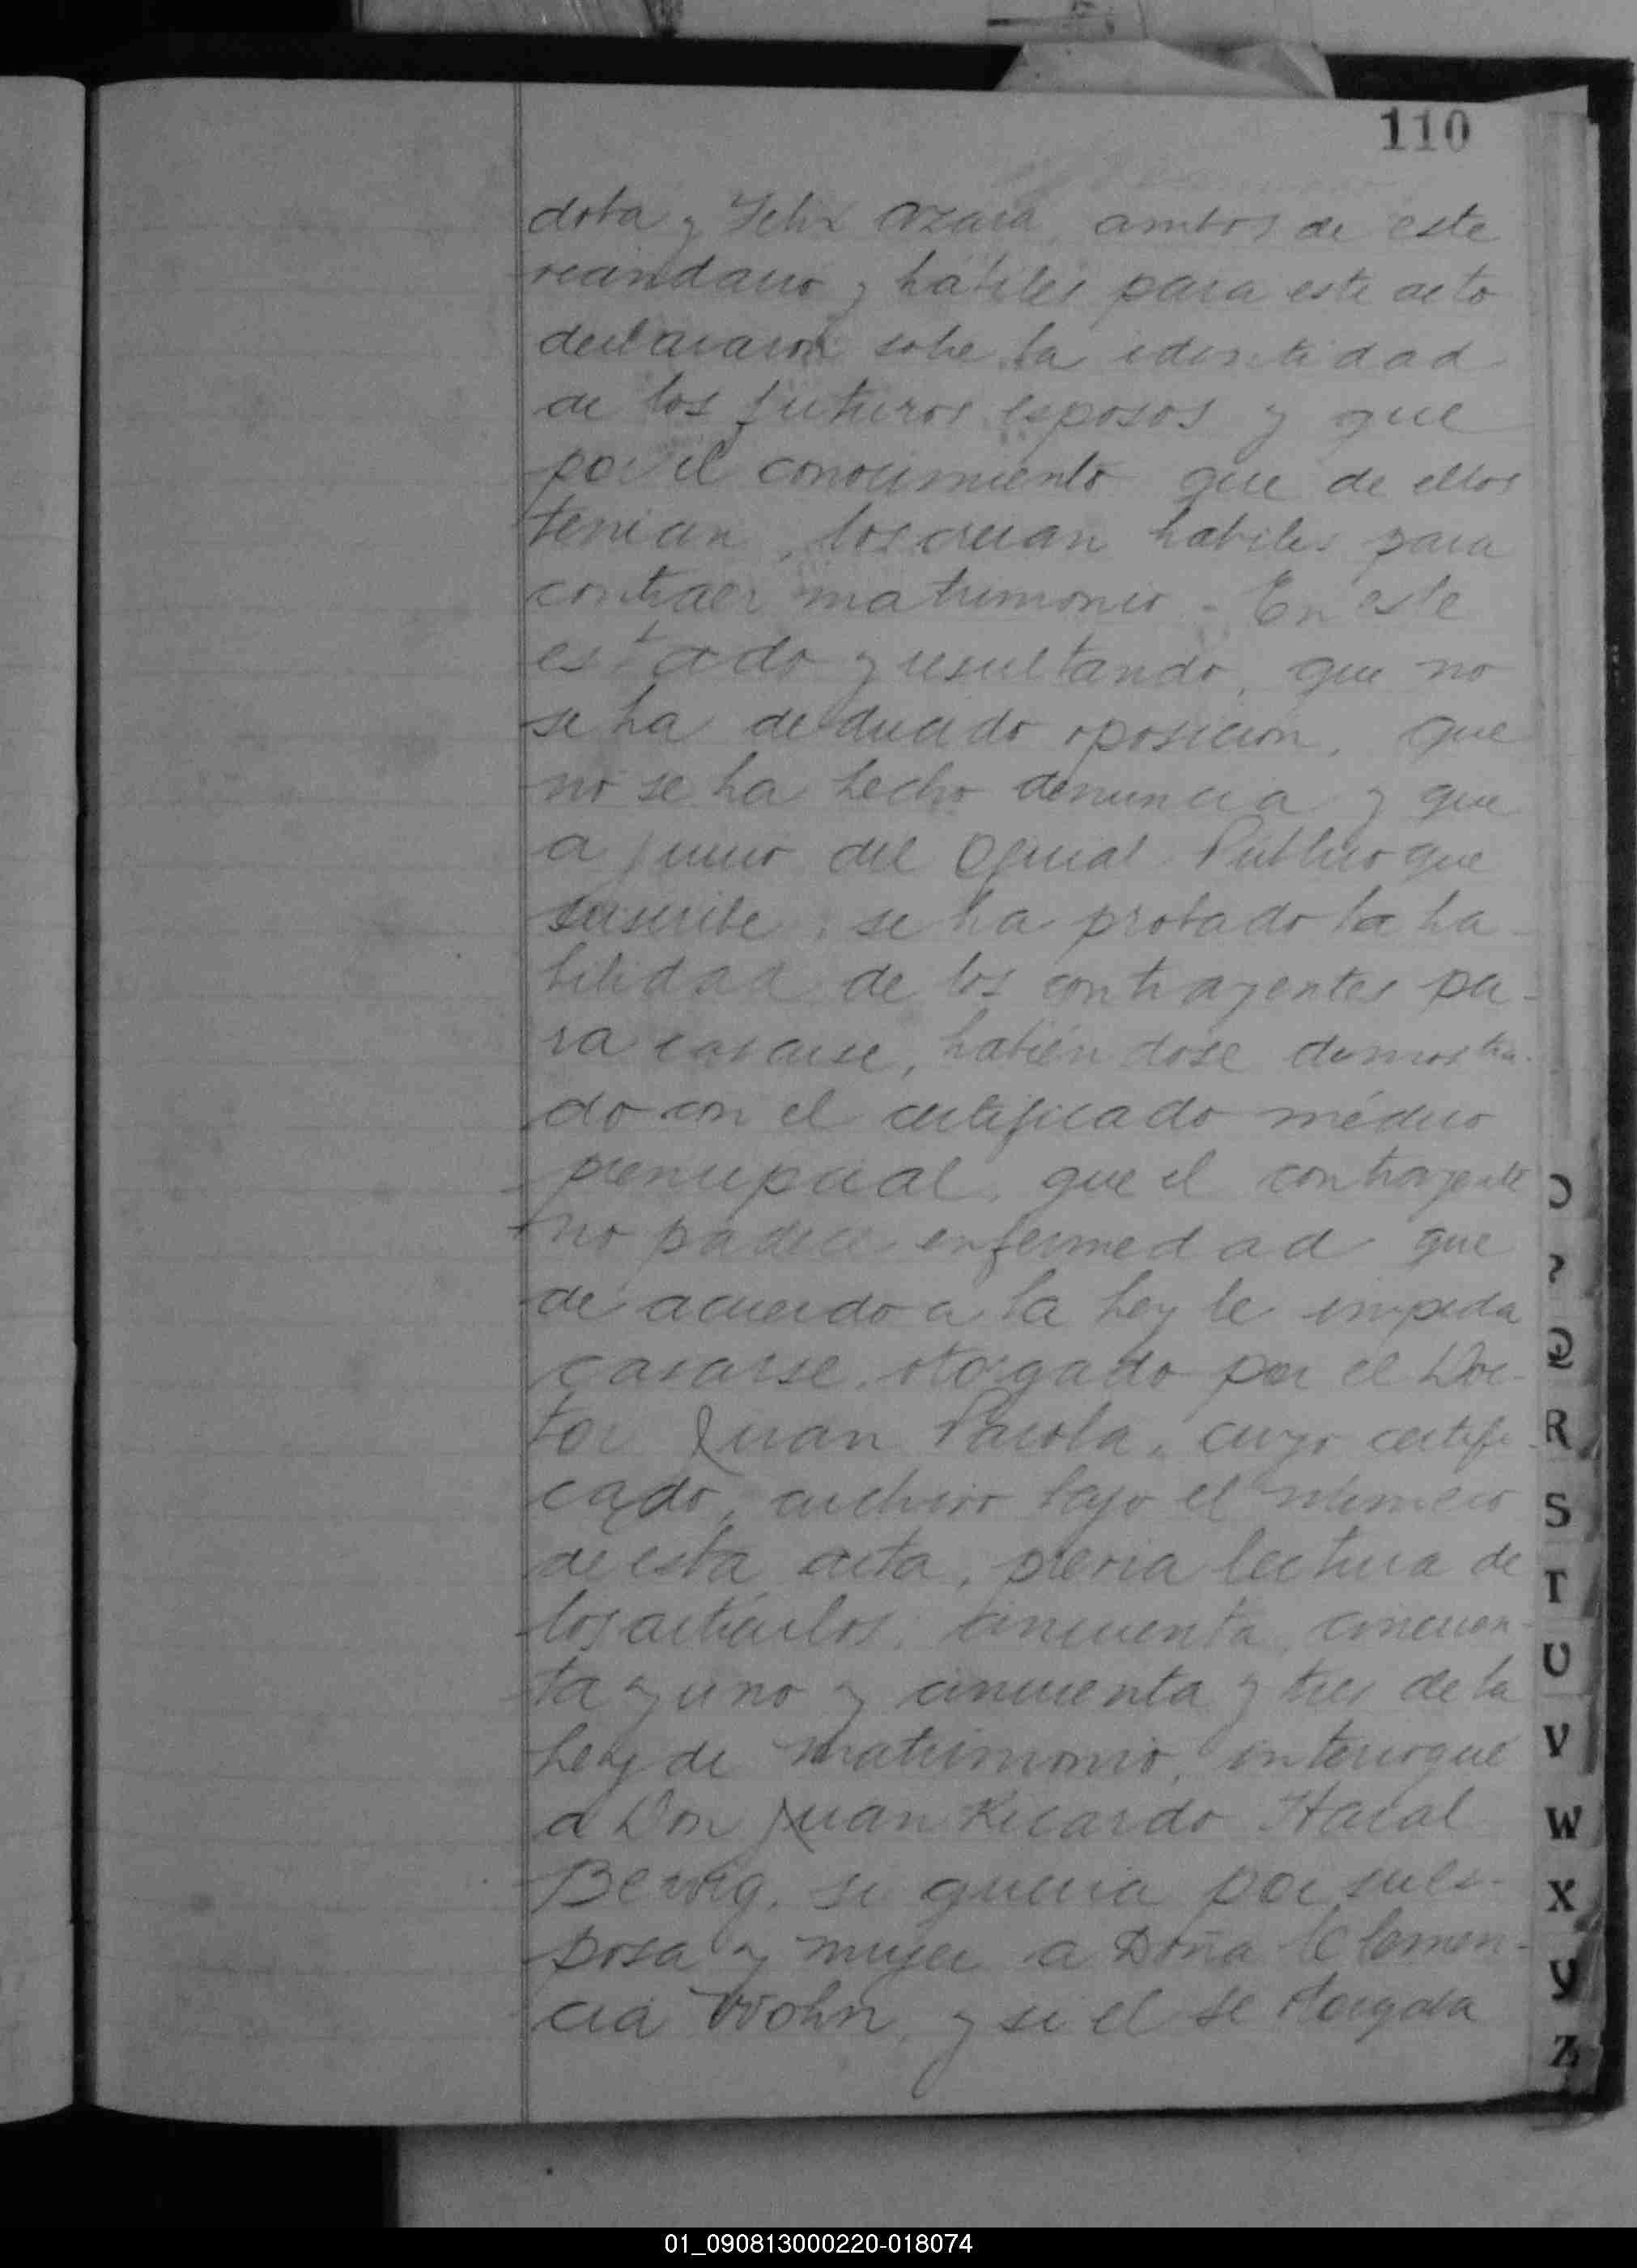 110
doba y Felix Azara, ambos de este
vecindario y hábiles para este acto
declararon sobre la identidad
de los futuros esposos y que
por el conocimiento que de ellos
tenian, los creian habiles para
contraer matrimonio - En este
estado y resultando, que no
se ha deducido oposición, que
no se ha hecho denuncia y que
a juicio del Oficial Público que
suscribe, se ha probado la ha-
bilidad de los contrayentes pa-
ra casarse, habiéndose demostra-
do con el certificado médico
prenupcial, que el contrayente
no padece enfermedad que
de acuerdo a la Ley le impida
casarse, otorgado por el Doc-
tor Juan Parola, cuyo certifi-
cado, archivo bajo el número
de esta acta, previa lectura de
los artículos, cincuenta, cincuen-
ta y uno y cincuenta y tres de la
Ley de Matrimonio, interrogué
a Don Juan Ricardo
si queria por su es-
posa y mujer a Doña Clemen-
cia Wohn, y si el se otorgaba
O
P
Q
R
S
T
U
V
W
X
Y
Z
01_090813000220-018074